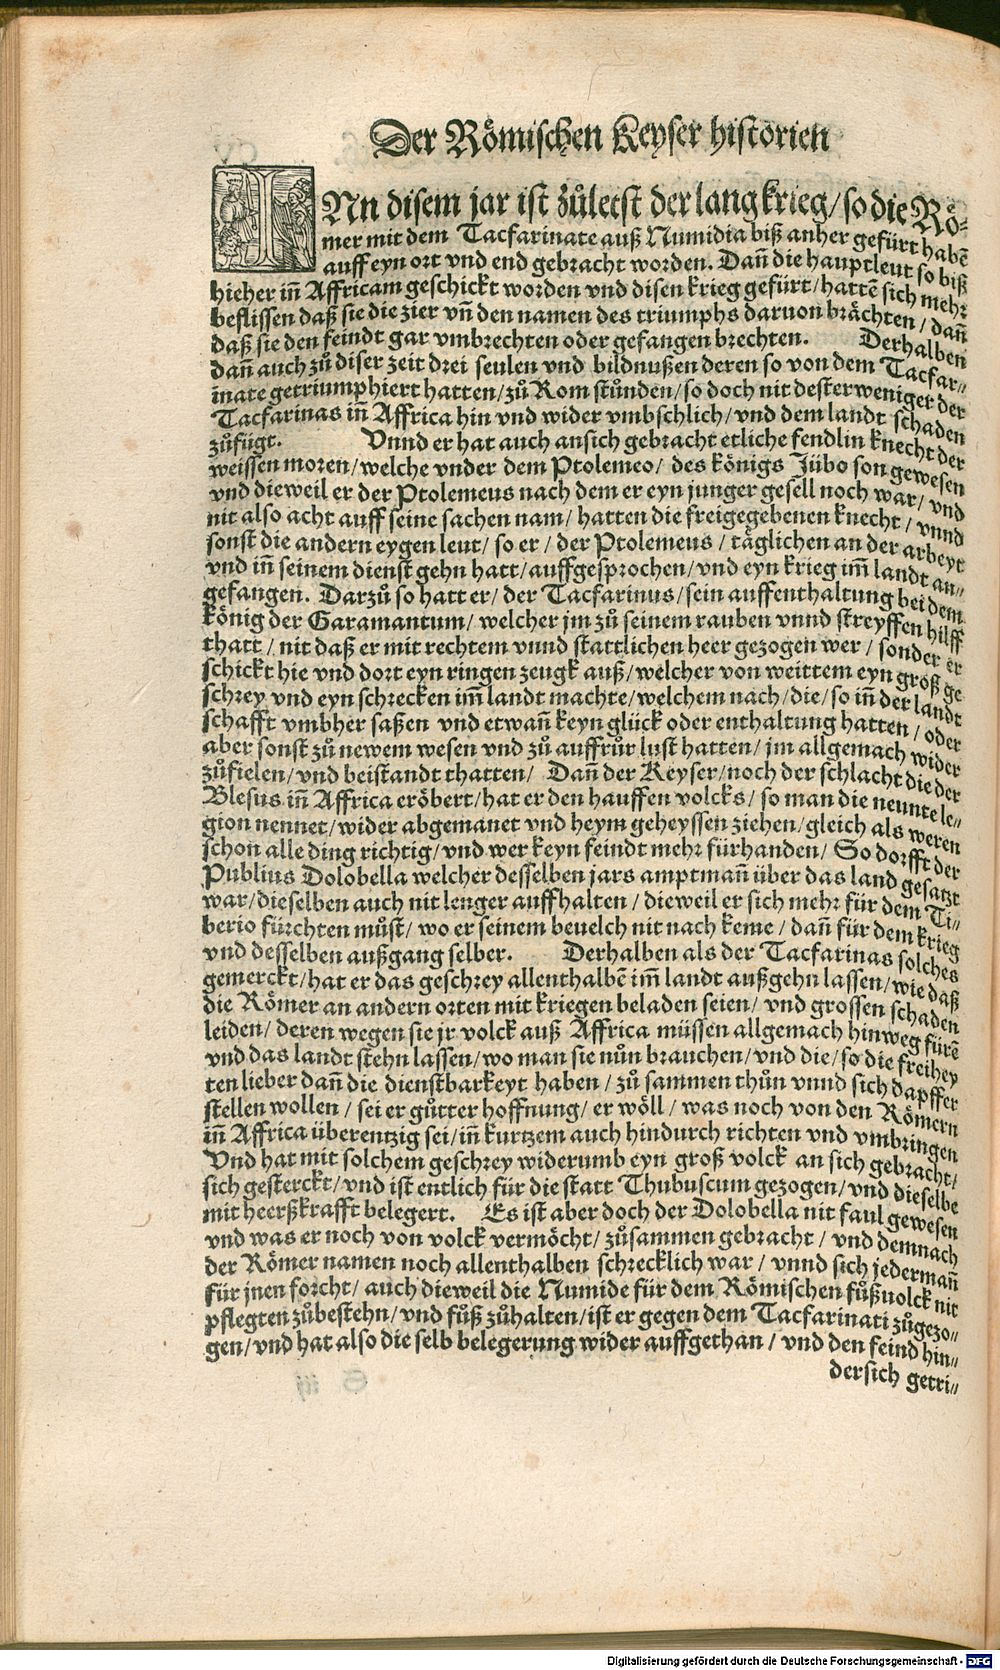 Der Römischen Keyser historien
INn disem jar ist zůletst der lang krieg/ so die Rö-
mer mit dem Tacfarinate auß Numidia biß anher gefürt habẽ
auff eyn ort vnd end gebracht worden. Dañ die hauptleut so biß
hieher iñ Affricam geschickt worden vnd disen krieg gefürt/ hattẽ sich mehr
beflissen daß sie die zier vñ den namen des triumphs daruon brächten/ dañ
daß sie den feindt gar vmbrechten oder gefangen brechten. Derhalben
dañ auch zů diser zeit drei seulen vnd bildnußen deren so von dem Tacfar-
inate getriumphiert hatten/ zů Rom stůnden/ so doch nit desterweniger der
Tacfarinas iñ Affrica hin vnd wider vmbschlich/ vnd dem landt schaden
zůfügt. Vnnd er hat auch ansich gebracht etliche fendlin knecht der
weissen moren/ welche vnder dem Ptolemeo/ des königs Jübo son gewesen
vnd dieweil er der Ptolemeus nach dem er eyn junger gesell noch war/ vnd
nit also acht auff seine sachen nam/ hatten die freigegebenen knecht/ vnnd
sonst die andern eygen leut/ so er/ der Ptolemeus/ täglichen an der arbeyt
vnd iñ seinem dienst gehn hatt/ auffgesprochen/ vnd eyn krieg im̃ landt an-
gefangen. Darzů so hatt er/ der Tacfarinus/ sein auffenthaltung bei dem
könig der Garamantum/ welcher jm zů seinem rauben vnnd streyffen hilff
thatt/ nit daß er mit rechtem vnnd stattlichen heer gezogen wer/ sonder er
schickt hie vnd dort eyn ringen zeugk auß/ welcher von weittem eyn groß ge
schrey vnd eyn schrecken im̃ landt machte/ welchem nach/ die/ so iñ der landt
schafft vmbher saßen vnd etwañ keyn glück oder enthaltung hatten/ oder
aber sonst zů newem wesen vnd zů auffrůr lust hatten/ jm allgemach wider
zůfielen/ vnd beistandt thatten/ Dañ der Keyser/ noch der schlacht die der
Blesus iñ Affrica eröbert/ hat er den hauffen volcks/ so man die neunte le-
gion nennet/ wider abgemanet vnd heym geheyssen ziehen/ gleich als weren
schon alle ding richtig/ vnd wer keyn feindt mehr fürhanden/ So dorfft der
Publius Dolobella welcher desselben jars amptmañ über das land gesatzt
war/ dieselben auch nit lenger auffhalten/ dieweil er sich mehr für dem Ti-
berio fürchten můst/ wo er seinem beuelch nit nach keme/ dañ für dem krieg
vnd desselben außgang selber. Derhalben als der Tacfarinas solches
gemerckt/ hat er das geschrey allenthalbẽ im̃ landt außgehn lassen/ wie daß
die Römer an andern orten mit kriegen beladen seien/ vnd grossen schaden
leiden/ deren wegen sie jr volck auß Affrica müssen allgemach hinweg fürẽ
vnd das landt stehn lassen/ wo man sie nůn brauchen/ vnd die/ so die freihey
ten lieber dañ die dienstbarkeyt haben/ zů sammen thůn vnnd sich dapffer
stellen wollen/ sei er gůtter hoffnung/ er wöll/ was noch von den Römern
iñ Affrica überentzig sei/ iñ kurtzem auch hindurch richten vnd vmbringen
Vnd hat mit solchem geschrey widerumb eyn groß volck an sich gebracht/
sich gesterckt/ vnd ist entlich für die statt Thubuscum gezogen/ vnd dieselbe
mit heerßkrafft belegert. Es ist aber doch der Dolobella nit faul gewesen
vnd was er noch von volck vermöcht/ zůsammen gebracht/ vnd demnach
der Römer namen noch allenthalben schrecklich war/ vnnd sich jedermañ
für jnen forcht/ auch dieweil die Numide für dem Römischen fůßuolck nit
pflegten zůbestehn/ vnd fůß zůhalten/ ist er gegen dem Tacfarinati zůgezo-
gen/ vnd hat also die selb belegerung wider auffgethan/ vnd den feind hin-
dersich getri-
Digitalisierung gefördert durch die Deutsche Forschungsgemeinschaft - DFG